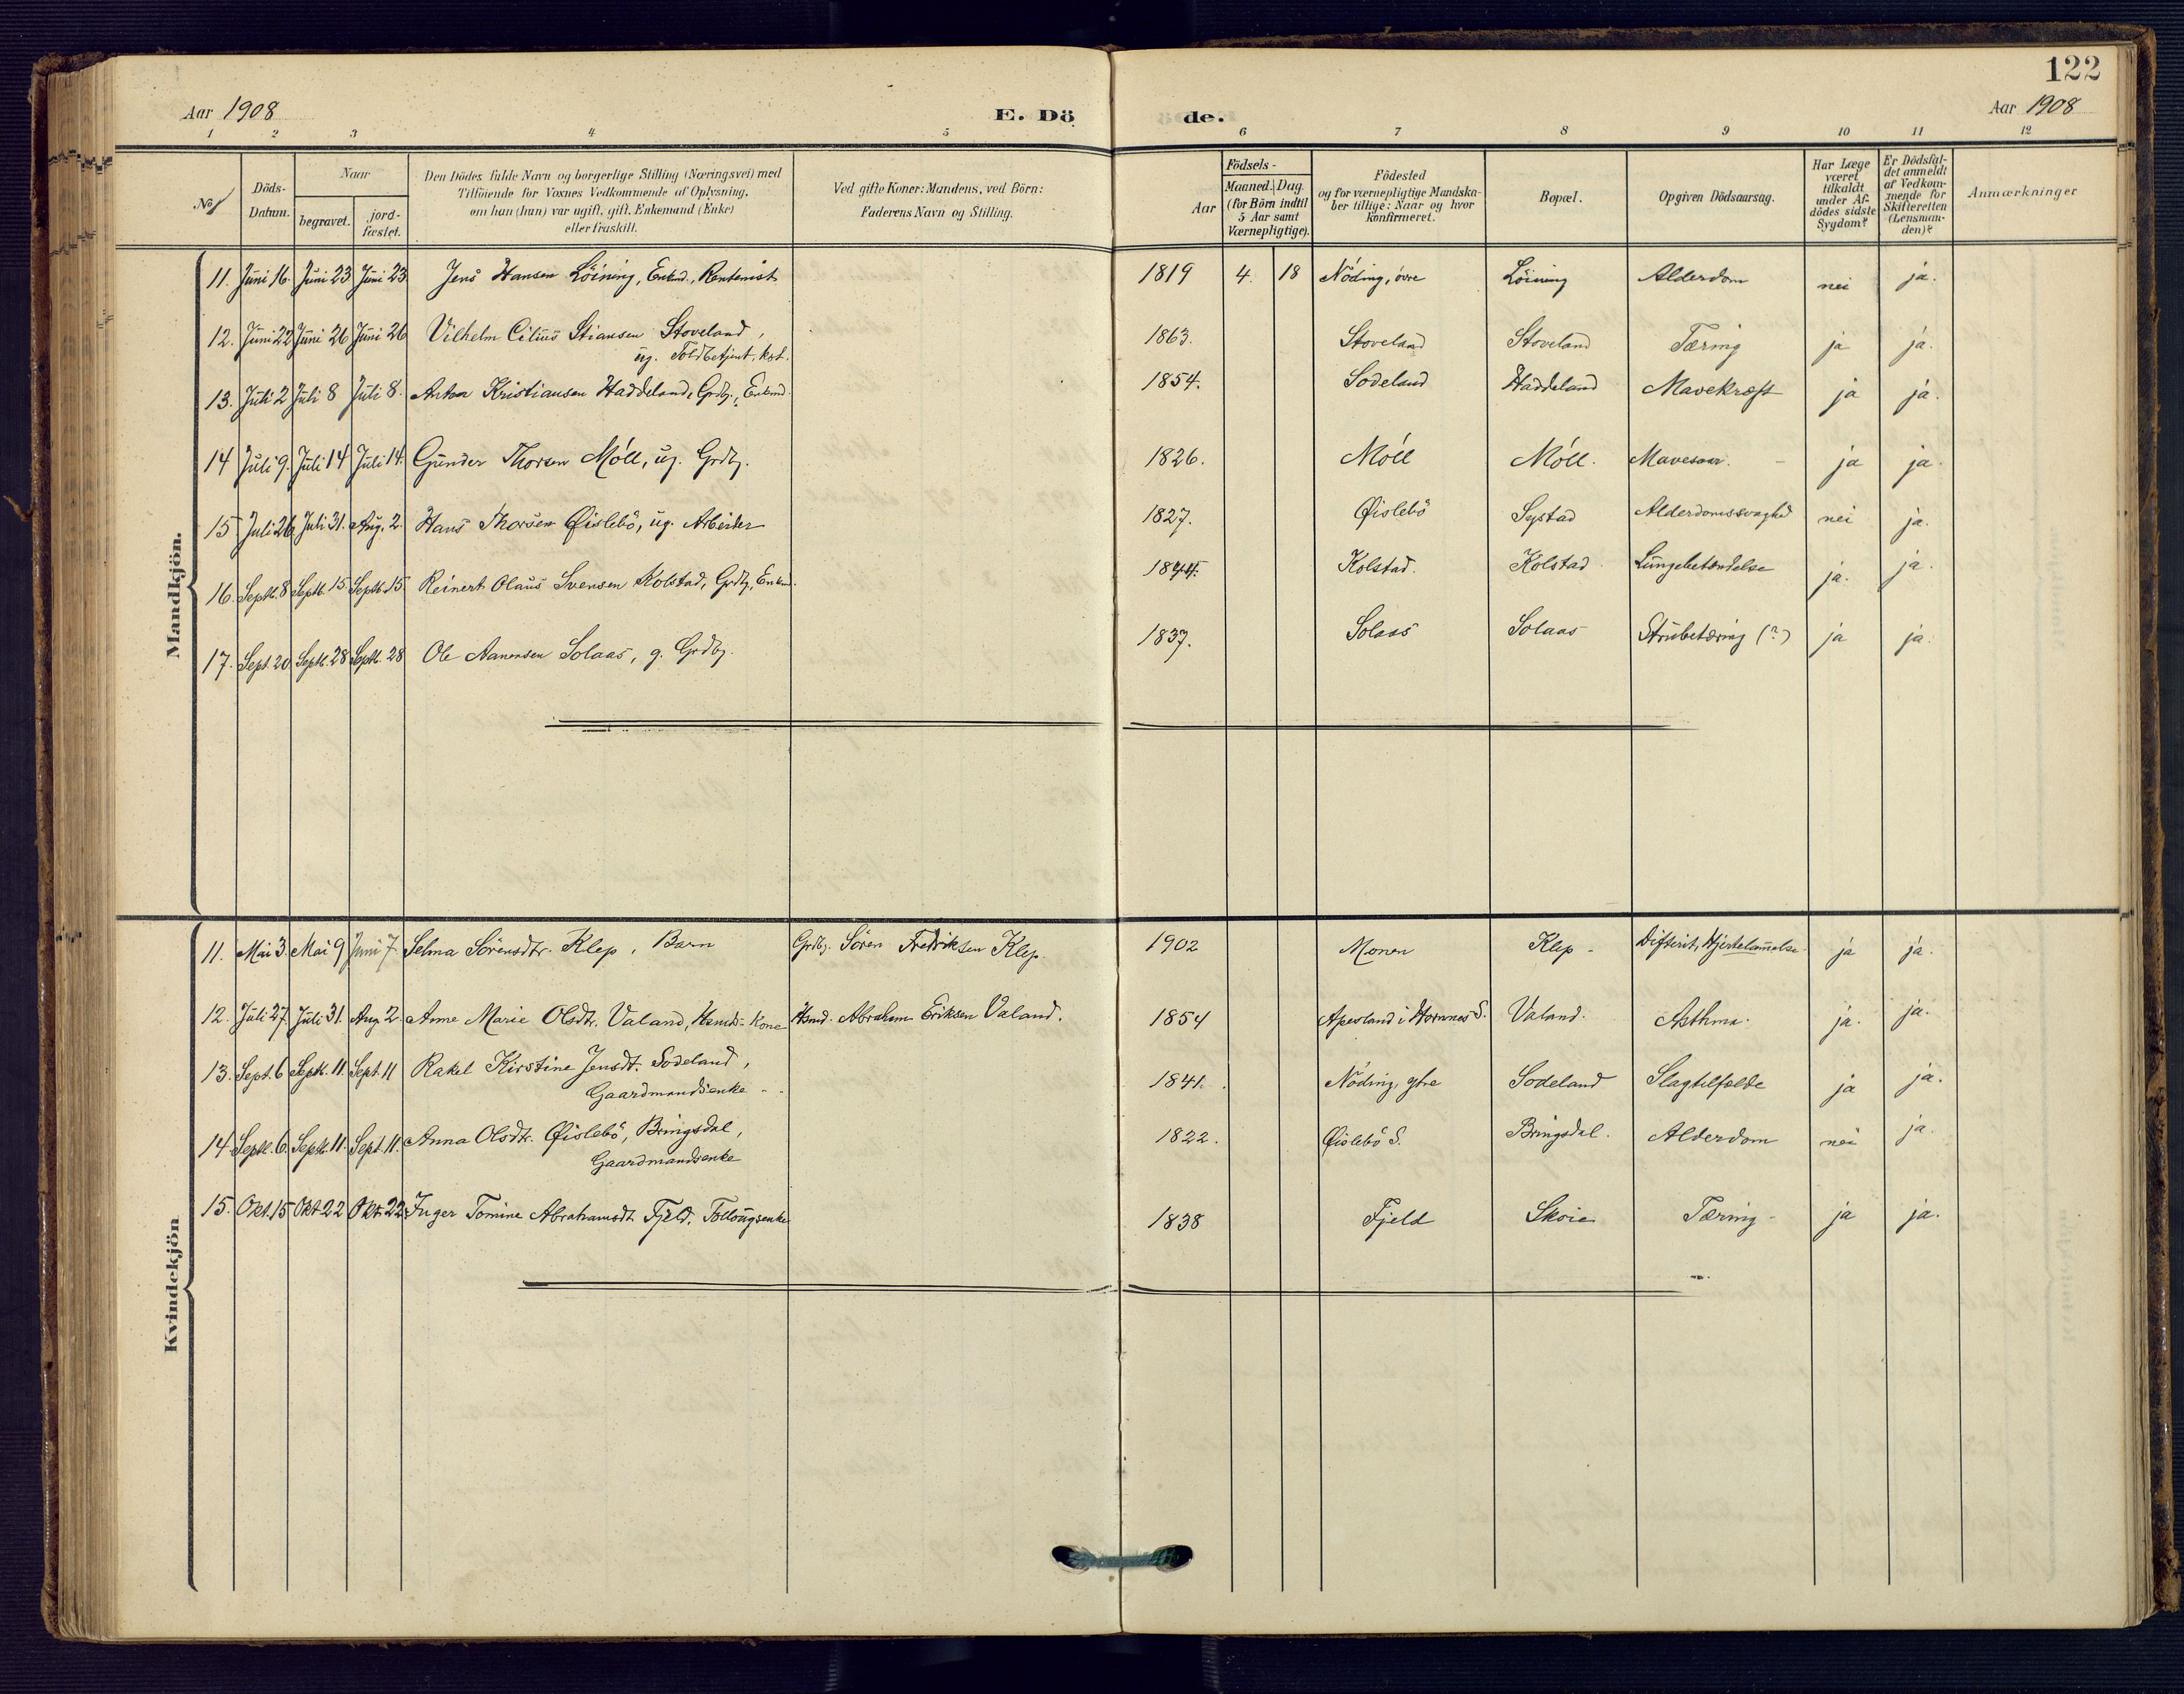 122
Aar 1908 E. Dö de. Aar 1908
1 2 3 4 5 6 7 8 9 10 11 12
No Döds-Datum. Naar begravet. jord-fæstet. Den Dödes fulde Navn og borgerlige Stilling (Næringsvei) med Tilföiende for Voxnes Vedkommende af Oplysning, om han (hun) var ugift, gift, Enkemand (Enke) eller fraskilt. Ved gifte Koner: Mandens, ved Börn: Faderens Navn og Stilling. Aar Födsels- Maaned. Dag. (for Börn indtil 5 Aar samt Værnepligtige). Födested og for værnepligtige Mandska-ber tillige: Naar og hvor konfirmeret. Bopæl. Opgiven Dödsaarsag. Har Læge været tilkaldt under Af-dödes sidste Sygdom? Er Dödsfal-det anmeldt af Vedkom-mende for Skifteretten (Lensman-den)? Anmærkninger
Mandkjön.
11. Juni 16. Juni 23 Juni 23 Jens Hansen Löining, Enkmd., Rentenist 1819 4. 18 Nöding, övre Löining Alderdom nei ja.
12. Juni 22 Juni 26 Juni 26 Vilhelm Cilius Stiansen Stoveland, 1863. Stoveland Stoveland Tæring ja ja.
ug. Toldbetjent, kst.
13. Juli 2 Juli 8 Juli 8. Anton Kristiansen Haddeland, Grdbr., Enkmd. 1854. Sodeland Haddeland Mavekræft ja ja.
14 Juli 9. Juli 14 Juli 14. Gunder Thorsen Möll, ug. Grdbr. 1826. Möll Möll. Mavesaar. ja ja.
15 Juli 26 Juli 31. Aug. 2. Hans Thorsen Øislebö, ug. Arbeider 1827. Øislebö Systad Alderdomssvaghed nei ja.
16. Septb. 8 Septb. 15 Septb. 15. Reinert Olaus Svensen Kolstad, Grdbr., Enkmd. 1844. Kolstad. Kolstad. Lungebetændelse ja. ja.
17. Sept. 20 Septb. 28 Septb. 28 Ole Aanensen Solaas, g. Grdbr. 1837. Solaas Solaas Strubetæring (?) ja ja.
Kvindekjön
11. Mai 3. Mai 9 Juni 7. Selma Sörensdtr. Klep, Barn Grdbr. Sören Fredriksen Klep. 1902 Monen Klep - Difterit, Hjertelammelse. ja ja.
12. Juli 27. Juli 31. Aug 2. Anne Marie Olsdtr. Valand, Hsmds-Kone Hsmd. Abraham Eriksen Valand. 1854 Apesland i Hornnes S. Valand. Asthma. ja. ja.
13. Sept. 6 Septb. 11. Sept. 11 Rakel Kirstine Jensdt. Sodeland, 1841. Nöding, ytre Sodeland Slagtilfælde ja ja.
Gaardmandsenke
14. Septb. 6. Septb. 11. Sept. 11. Anna Olsdtr. Øislebö, Bringsdal, 1822. Øislebö S. Bringsdal. Alderdom nei ja.
Gaardmandsenke
15. Okt. 15 Okt 22 Okt. 22. Inger Tomine Abrahamsdt. Fjeld, Føllougsenke 1838 Fjeld Skoie Tæring - ja ja.